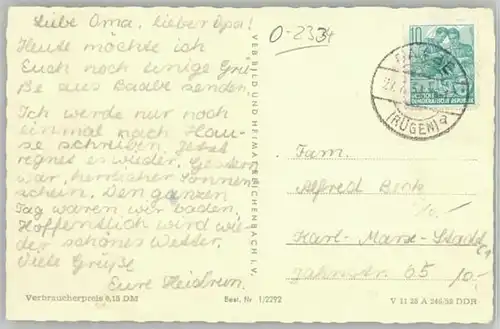 Liebe Oma, lieber Opa!
Heute möchte ich
Euch noch einige Grü-
ße aus Baabe senden.
Ich werde nur noch
einmal nach Hau-
se schreiben. Jetzt
regnet es wieder. Gestern
war herrlicher Sonnen
schein. Den ganzen
Tag waren wir baden.
Hoffentlich wird wie-
der schönes Wetter.
Viele Grüße
Eure Heidrun.
Verbraucherpreis 0,15 DM
VEB BILD UND HEIMAT REICHENBACH I. V.
Best. Nr. 1/2292
10
DEMOKRATISCHE REPUBLIK
(RÜGEN) a
Fam.
Alfred
Karl-Marx-Stadt
65
10,-
V 11 28 A 246/58 DDR